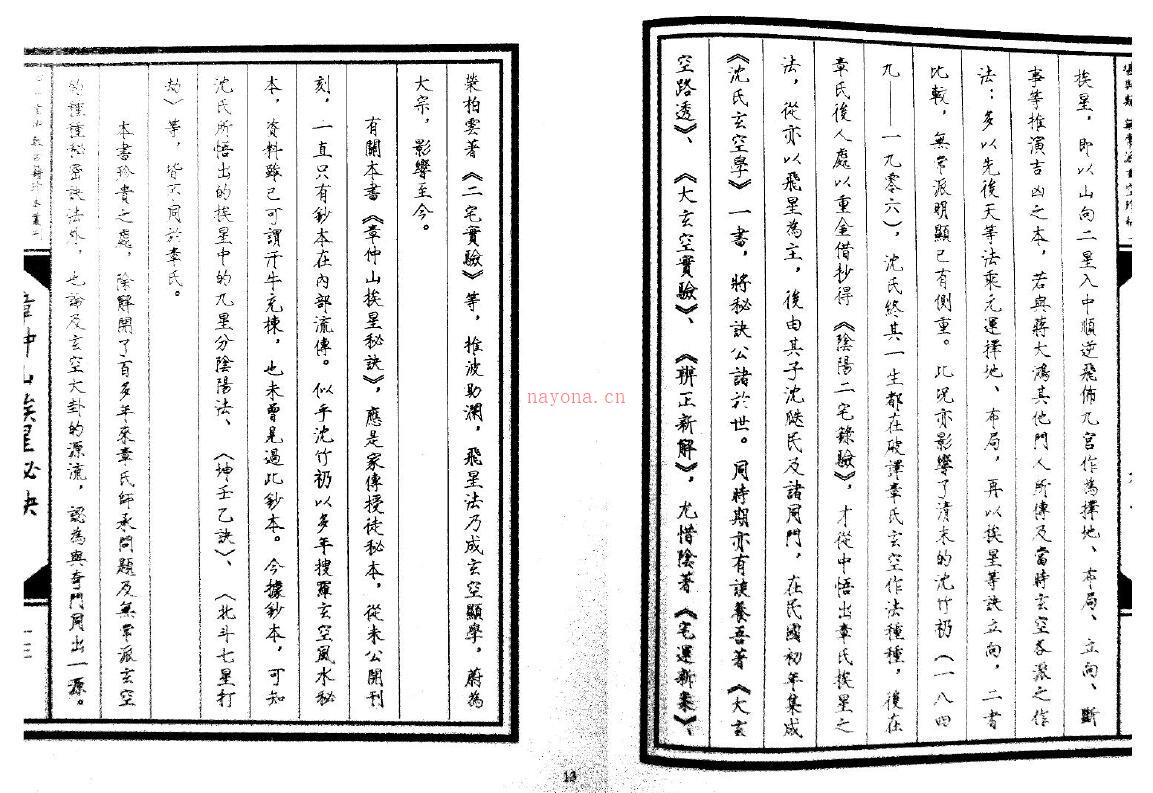 挨星，即以山向二星入中順逆飛佈九宮作為擇地、布局、立向、斷
事等推演吉凶之本，若與蔣大鴻其他門人所傳及當時玄空各派之作
法：多以先後天等法乘元運擇地、布局，再以挨星等訣立向，二書
比較，無常派明顯已有側重。此況亦影響了清末的沈竹礽（一八四
九——一九零六），沈氏終其一生都在破譯章氏玄空作法種種，後在
章氏後人處以重金借抄得《陰陽二宅錄驗》，才從中悟出章氏挨星之
法，從亦以飛星為主，後由其子沈瓞民及諸同門，在民國初年集成
《沈氏玄空學》一書，將秘訣公諸於世。同時期亦有談養吾著《大玄
空路透》、《大玄空實驗》、《辨正新解》，尤惜陰著《宅運新案》、
榮柏雲著《二宅實驗》等，推波助瀾，飛星法乃成玄空顯學，蔚為
大宗，影響至今。
有關本書《章仲山挨星秘訣》，應是家傳授徒秘本，從未公開刊
刻，一直只有鈔本在內部流傳。似乎沈竹礽以多年搜羅玄空風水秘
本，資料雖已可謂汗牛充棟，也未曾見過此鈔本。今據鈔本，可知
沈氏所悟出的挨星中的九星分陰陽法、〈坤壬乙訣〉、〈北斗七星打
劫〉等，皆不同於章氏。
本書珍貴之處，除解開了百多年來章氏師承問題及無常派玄空
的種種秘密訣法外，也論及玄空大卦的源流，認為與奇門同出一源。
章仲山挨星秘訣
一三
13
nayona.cn